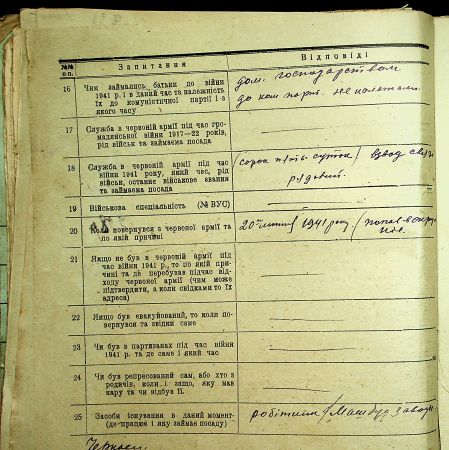 №№ п.п.
Запитання
Відповіді
16
Чим займались батьки до війни
1941 р. і в даний час та належність
їх до комуністичної партії і з
якого часу
дом. господарством
до ком парт. не
17
Служба в червоній армії під час гро-
мадянської війни 1917—22 років,
рід військ та займаєма посада
18
Служба в червоній армії під час
війни 1941 року, який час, рід
військ, останнє військове звання
та займаєма посада
(сорок п'ять суток) взвод
рядовий.
19
Військова спеціальність (№ ВУС)
20
Коли повернувся з червоної армії та
по якій причині
1941 року (попав в
21
Якщо не був в червоній армії під
час війни 1941 р., то по якій при-
чині та де перебував підчас від-
ходу червоної армії (чим може
підтвердити, а коли свідками то їх
адреса)
22
Якщо був евакуйований, то коли по-
вернувся та звідки саме
23
Чи був в партизанах під час війни
1941 р. та де саме і який час
24
Чи був репресований сам, або хто з
родичів, коли і защо, яку мав
кару та чи відбув її.
25
Засоби існування в даний момент
(де працює і яку займає посаду)
робітник